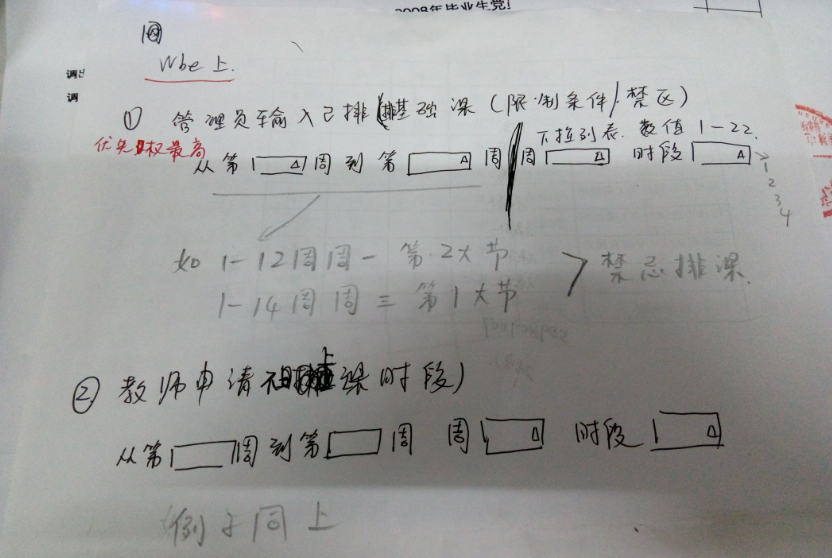 2008年毕业生党!
Wbe 上.
调
调
① 管理员输入已排基础课(限制条件/禁区)
优先权最高
下拉列表. 数值 1-22.
从第 周 到 第 周 周 时段
1
2
3
4
如 1-12周周一 第2大节
1-14周周三 第1大节
禁忌排课.
② 教师申请 上课时段)
从第 周到第 周 周 时段
例子同上